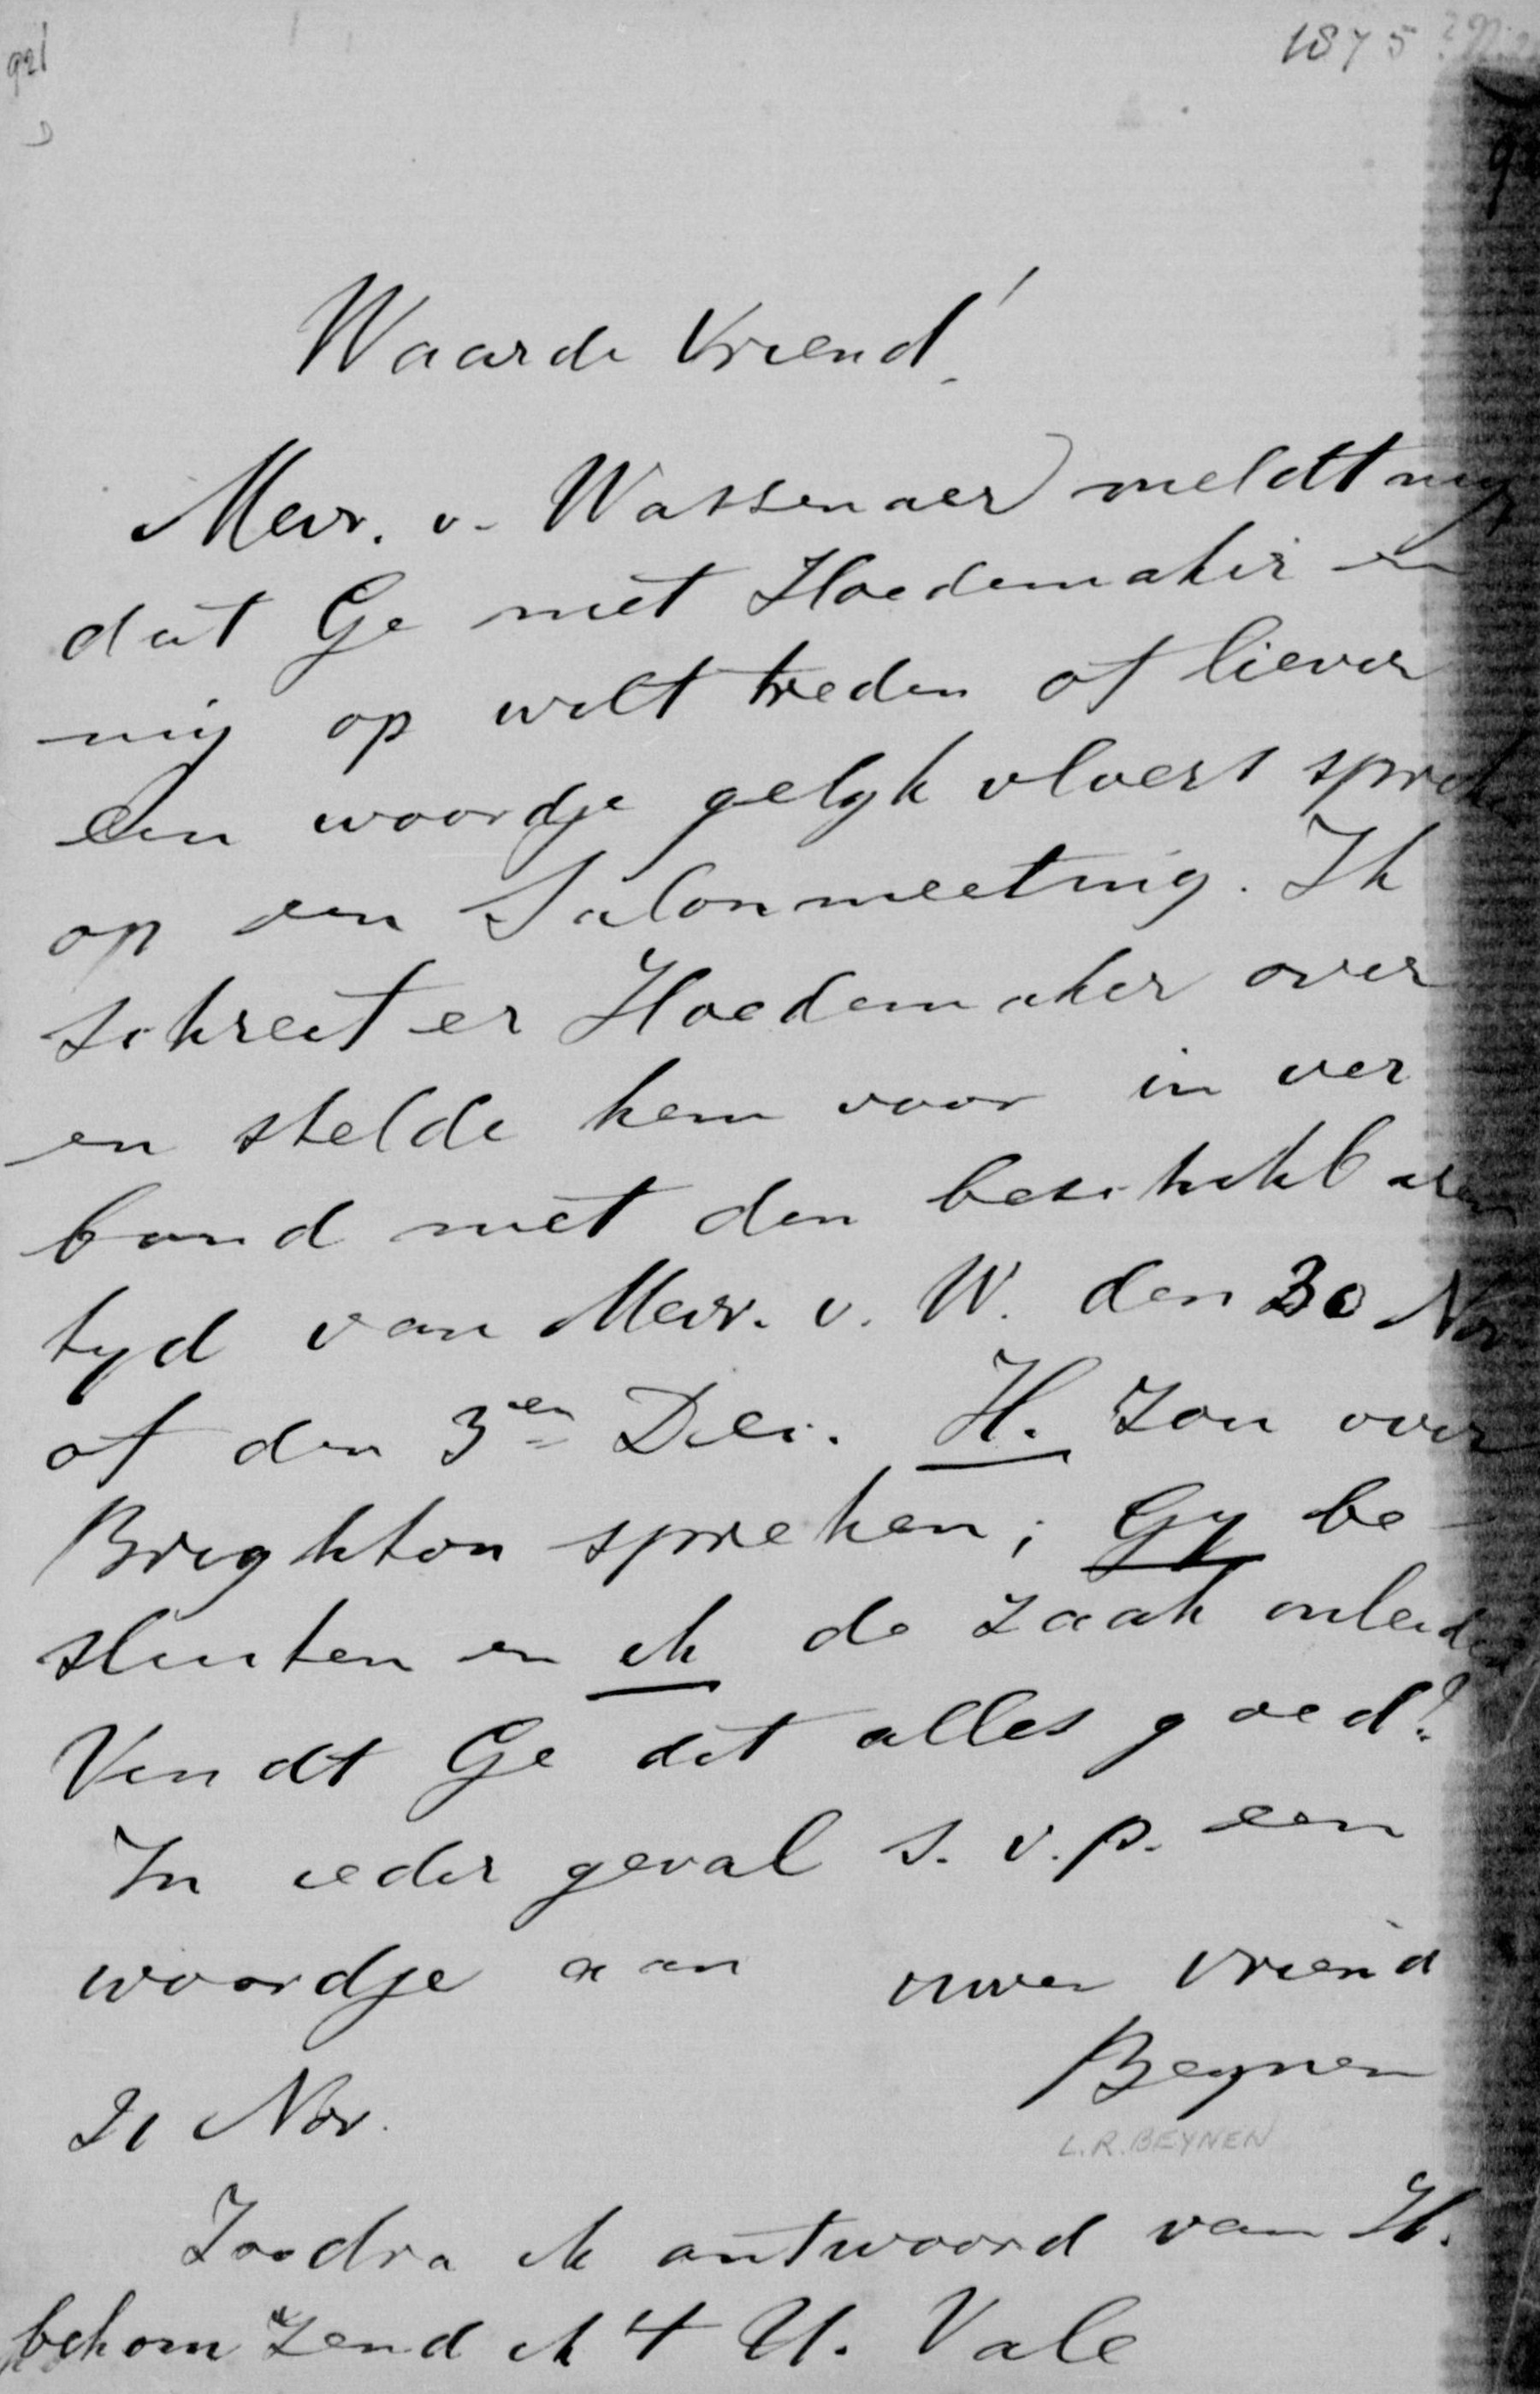 921
1875
Waarde Vriend!
Mevr. v. Wassenaer meldt mij
dat Ge met Hoedemaker en
mij op wilt treden of liever
een woordje gelijk vloers spreken
op een Salonmeeting. Ik
schreef er Hoedemaker over
en stelde hem voor in ver
band met den beschikbaren
tijd van Mevr. v. W. den 30 Nov
of den 3en Dec. H. zou over
Brighton spreken; Gij be
sluiten en ik de zaak inleiden
Vindt Ge dit alles goed?
In ieder geval s. v. p. een
woordje aan uwen vriend
Beynen
L.R. BEYNEN
21 Nov.
Zoodra ik antwoord van H.
bekom zend ik 't U. Vale